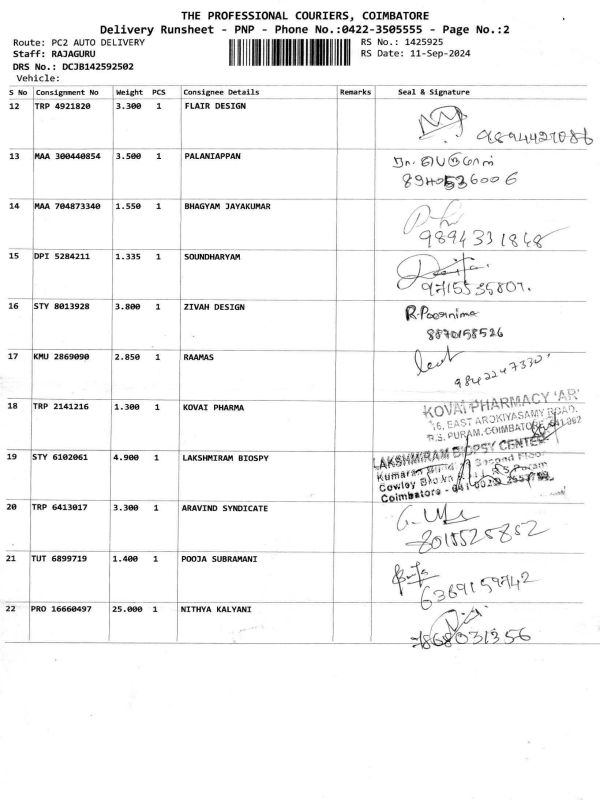 THE PROFESSIONAL COURIERS, COIMBATORE
Delivery Runsheet - PNP - Phone No.:0422-3505555 - Page No.:2
Route: PC2 AUTO DELIVERY RS No.: 1425925
Staff: RAJAGURU RS Date: 11-Sep-2024
DRS No.: DCJB142592502
Vehicle:
S No Consignment No Weight PCS Consignee Details Remarks Seal & Signature
12 TRP 4921820 3.300 1 FLAIR DESIGN
9894427086
13 MAA 300440854 3.500 1 PALANIAPPAN
8940536006
14 MAA 704873340 1.550 1 BHAGYAM JAYAKUMAR
9894331848
15 DPI 5284211 1.335 1 SOUNDHARYAM
9715535807.
16 STY 8013928 3.800 1 ZIVAH DESIGN R.Poornima
8870158526
17 KMU 2869090 2.850 1 RAAMAS
9842247330
18 TRP 2141216 1.300 1 KOVAI PHARMA KOVAI PHARMACY 'AR'
16, EAST AROKIYASAMY ROAD.
R.S. PURAM, COIMBATORE
19 STY 6102061 4.900 1 LAKSHMIRAM BIOSPY LAKSHMIRAM BIOPSY CENTER
Kumaran Second Floor
Cowley Brown R.S. Puram
Coimbatore - 641 002
20 TRP 6413017 3.300 1 ARAVIND SYNDICATE
8015525852
21 TUT 6899719 1.400 1 POOJA SUBRAMANI
6369159742
22 PRO 16660497 25.000 1 NITHYA KALYANI
7868031356